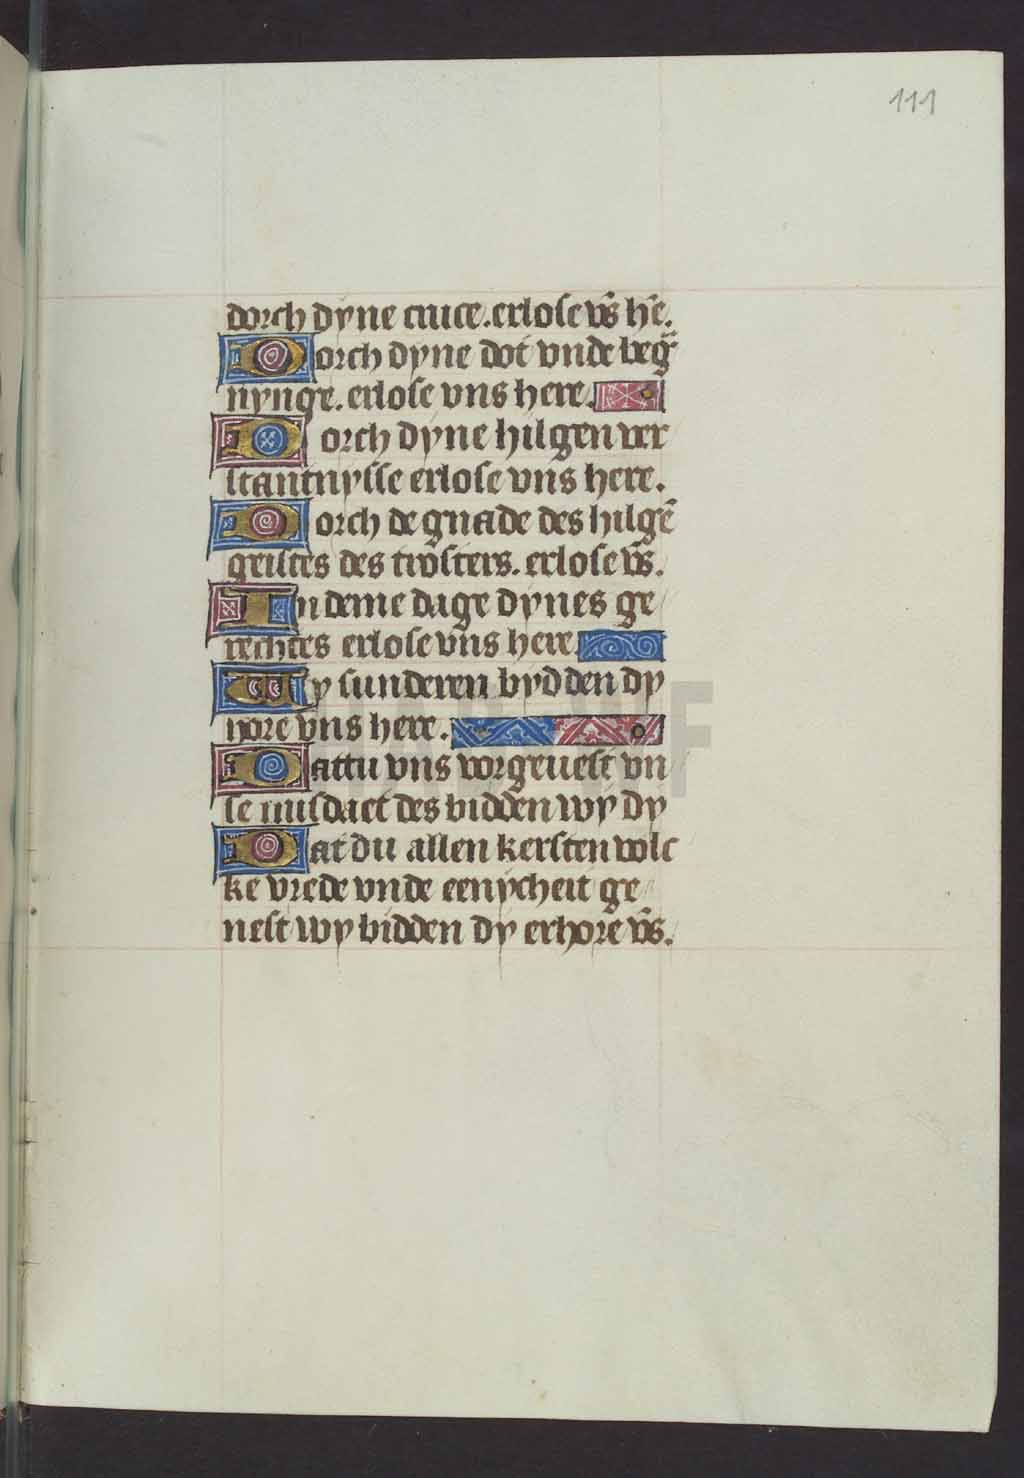 111
dorch dyne cruce. erlose vn̄s hē.
Dorch dyne dot vnde beg
nynge. erlose vns here.
Dorch dyne hilgen ver
stantnysse erlose vns here.
Dorch de gnade des hilgē
geistes des trösters. erlose vn̄s.
In deme dage dynes ge
rechtes erlose vns here.
Wy sunderen bydden dy
hore vns here.
Dattu vns vorgeuest vn
se misdaet des bidden wy dy
Dat du allen kersten volc
ke vrede vnde eenycheit ge
uest wy bidden dy erhore vn̄s.
HAB WF